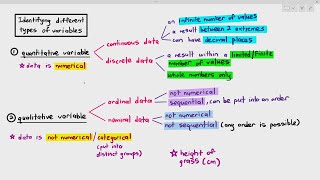 Identifying different
types of variables
① quantitative variable
★ data is numerical
continuous data
an infinite number of values
a result between 2 extremes
can have decimal places
discrete data
a result within a limited/finite
number of values
whole numbers only
② qualitative variable
★ data is not numerical/categorical
(put into
distinct groups)
ordinal data
not numerical
sequential, can be put into an order
nominal data
not numerical
not sequential (any order is possible)
★ height of
grass (cm)